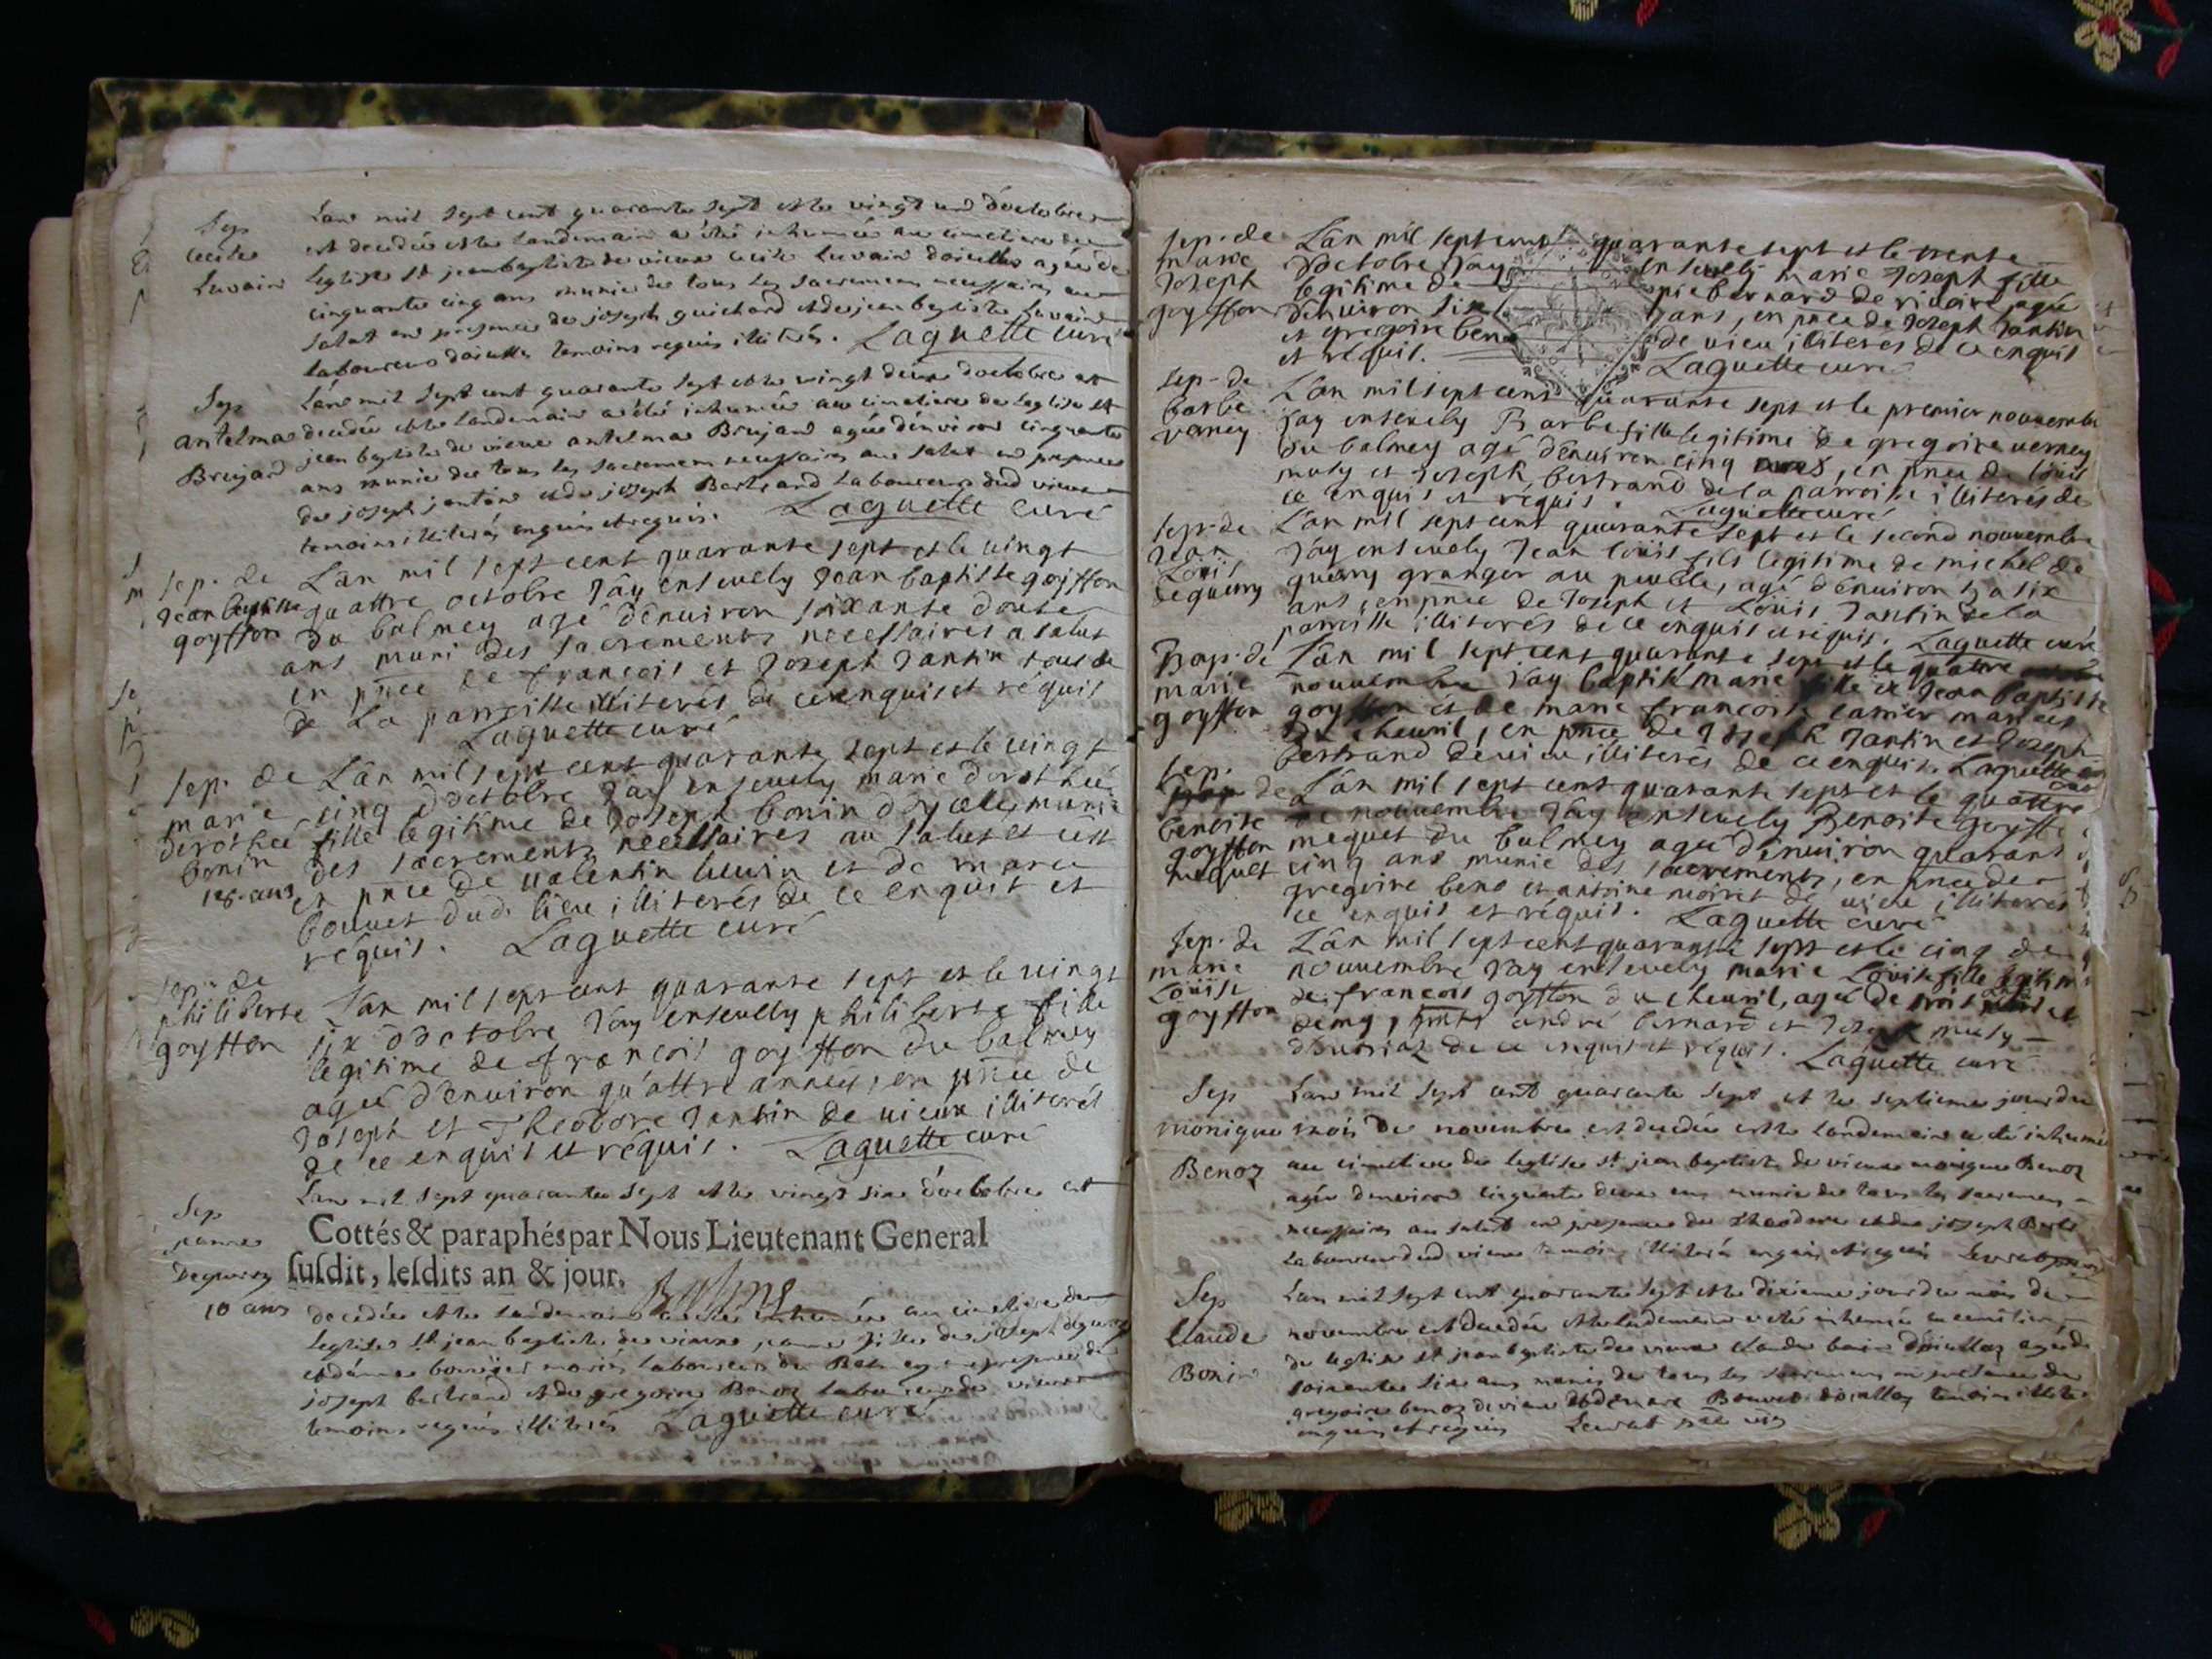 Sep
Cecile
Luvain
Lan mil sept cent quarante sept et le vingt un d'octobre
est decedée et le landemain a été inhumée au cimetiere de
Leglise st jean baptiste de vieux cecile Luvain doicelles agée de
cinquante cinq ans munie de tous les sacremens necessaires au
salut en presence de joseph guichard et de jean baptiste Luvain
laboureurs temoins requis illiterés. Laguette curé
Sep
antelma
Brujard
Lan mil sept cent quarante sept et le vingt deux doctobre est
decedée et le landemain a été inhumée au cimetiere de leglise st
jean baptiste de vieux antelma Brujard agée denviron cinquante
ans munie de tous les sacremens necessaires au salut en presence
de joseph jantin et de joseph Bertrand laboureurs dud vieux
temoins illiterés enquis et requis. Laguette curé
sep. de
Jean baptiste
goyffon
L'an mil sept cent quarante sept et le vingt
quattre octobre J'ay ensevely Jean baptiste goyffon
du balmey agé d'environ soixante douse
ans muni des sacrements necessaires a salut
en pñce de françois et Joseph Jantin tous de
de La parroisse illiterés de ce enquis et réquis
Laguette curé
sep. de
marie
dorothée
bonin
18. ans
L'an mil sept cent quarante sept et le vingt
cinq d'octobre J'ay ensevely marie dorothée
fille legitime de Joseph bonin munie
des sacrements necessaires au salut et
en pñce de valentin luvin et de marc
bouvet dud. lieu illiterés de ce enquis et
réquis. Laguette curé
sep. de
philiberte
goyffon
L'an mil sept cent quarante sept et le vingt
six d'octobre J'ay ensevelly philiberte fille
legitime de françois goyffon du balmey
agée d'environ quattre années, en pñce de
Joseph et Theodore Jantin de vieux illiterés
de ce enquis et réquis. Laguette curé
Sep
jeanne
Dequery
10 ans
Lan mil sept quarante sept et le vingt six d'octobre est
Cottés & paraphés par Nous Lieutenant General
susdit, lesdits an & jour.
decedée et le landemain a été inhumée au cimetiere de
Leglise st jean baptiste de vieux jeanne fille de joseph dequery
mariés laboureurs du Balmey en presence de
joseph bertrand et de gregoire Benoz laboureurs de vieux
temoins requis illiterés Laguette curé
sep. de
marie
Joseph
goyffon
L'an mil sept cent quarante sept et le trente
d'octobre J'ay ensevely marie Joseph fille
legitime de bernard de agée
d'environ six ans, en pñce de Joseph Jantin
et gregoire beno de vieu, illiterés de ce enquis
et réquis. Laguette curé
sep. de
barbe
verney
L'an mil sept cent quarante sept et le premier nouvembre
J'ay ensevely Barbe fille legitime de gregoire verney
du balmey agé d'environ cinq , en pñce de louis
musy et Joseph bertrand de la parroisse illiterés de
ce enquis et réquis. Laguette curé
sep. de
Jean
Louis
dequery
L'an mil sept cent quarante sept et le second nouvembre
J'ay ensevely Jean loüis fils legitime de michel de
query granger au , agé d'environ six
ans, en pñce de Joseph et Loüis Jantin de la
parroisse illiterés de ce enquis et réquis. Laguette curé
Bap. de
marie
goyffon
L'an mil sept cent quarante sept et le quattre
nouvembre J'ay baptisé marie fille de Jean baptiste
goyffon et de marie françoise mariés
du cheuril, en pñce de Joseph Jantin et Joseph
bertrand de vieu illiterés de ce enquis. Laguette curé
sep.
de
benoite
goyffon
mequet
L'an mil sept cent quarante sept et le quattre
de nouvembre J'ay ensevely Benoite goyffon
mequet du balmey agée d'environ quarante
cinq ans munie des sacrements, en pñce de
gregoire beno et antoine moiret de vieu illiterés
ce enquis et réquis. Laguette curé
sep. de
marie
Loüise
goyffon
L'an mil sept cent quarante sept et le cinq de
nouvembre J'ay ensevely marie Loüise fille legitime
de françois goyffon du cheuril, agée de trois ans et
demy, andré bernard et Joseph musy
de ce enquis et réquis. Laguette curé
Sep
monique
Benoz
Lan mil sept cent quarante sept et le septieme jour du
mois de novembre est decedée et le landemain a été inhumée
au cimetiere de leglise st jean baptiste de vieux monique Benoz
agée denviron cinquante deux ans munie de tous les sacremens
necessaires au salut en presence de theodore et de joseph
laboureurs dud vieux temoins illiterés enquis et requis
Sep
Claude
Bonin
Lan mil sept cent quarante sept et le dixieme jour du mois de
novembre est decedé et le landemain a été inhumé au cimetiere
de leglise st jean baptiste de vieux Claude bonin agé de
soixante six ans muni de tous les sacremens en presence de
gregoire benoz de vieux et de marc Bouvet temoins illiterés
enquis et requis